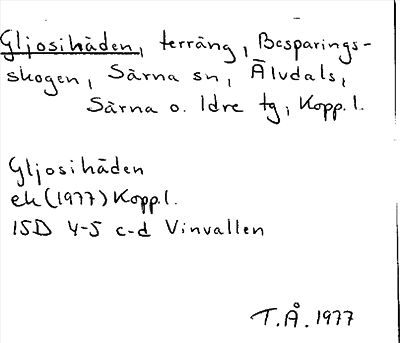 Gljosihåden, terräng, Besparings-
skogen, Särna sn, Älvdals,
Särna o. Idre tg, Kopp. l.
Gljosihåden
ek (1977) Kopp. l.
15D 4-5 c-d Vinvallen
T.Å. 1977